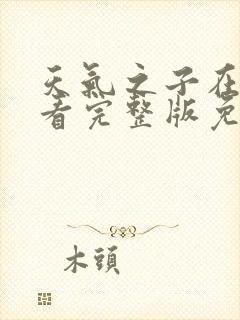 天氣之子在
看完整版免
木頭